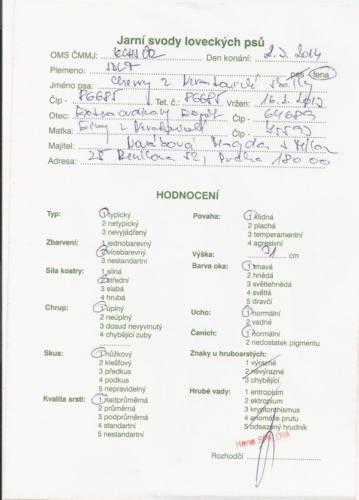 Jarní svody loveckých psů
OMS ČMMJ: Den konání: 2.3.2014
Plemeno: pes fena
Jméno psa: Cherry z
Čip - 86685 Tet. č.: 86685 Vržen:
Otec: Čip -
Matka: Čip -
Majitel: Magda
Adresa: Praha 180 00
HODNOCENÍ
Typ: 1 typický
2 netypický
3 nevyjádřený
Zbarvení: 1 jednobarevný
2 vícebarevný
3 nestandartní
Síla kostry: 1 silná
2 střední
3 slabá
4 hrubá
Chrup: 1 úplný
2 neúplný
3 dosud nevyvinutý
4 chybějící zuby
Skus: 1 nůžkový
2 klešťový
3 předkus
4 podkus
5 nepravidelný
Kvalita srsti: 1 nadprůměrná
2 průměrná
3 podprůměrná
4 standartní
5 nestandartní
Povaha: 1 klidná
2 plachá
3 temperamentní
4 agresivní
Výška: 71 cm
Barva oka: 1 tmavá
2 hnědá
3 světlehnědá
4 světlá
5 dravčí
Ucho: 1 normální
2 vadné
Čenich: 1 normální
2 nedostatek pigmentu
Znaky u hruboarstých:
1 výrazné
2 nevýrazné
3 chybějící
Hrubé vady: 1 entropium
2 ektropium
3 kryptorchismus
4 anomálie prutu
5 odsazený hrudník
Hana
Rozhodčí